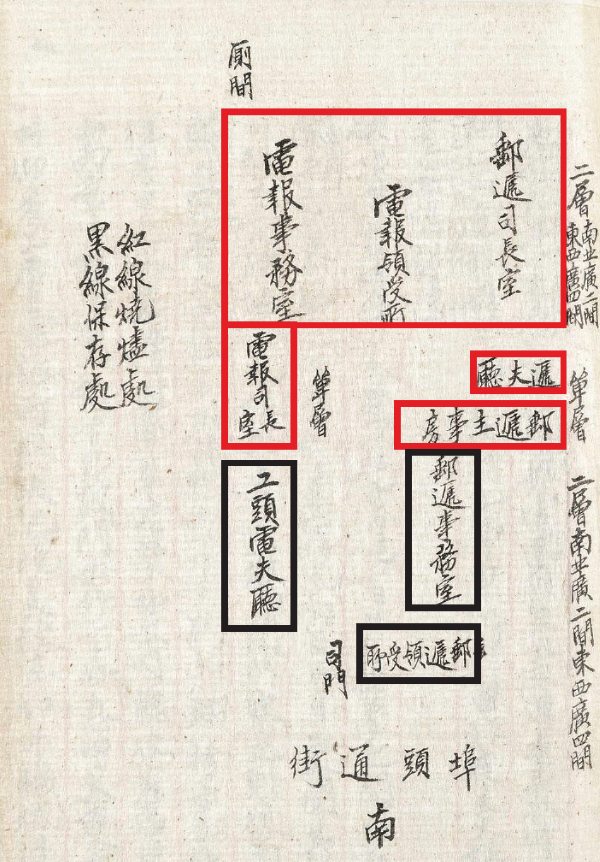 廁間
二層 南北廣二間 東西廣四間
郵遞司長室
電報領受所
電報事務室
紅線燒燼處
黑線保存處
單層
遞夫廳
郵遞主事房
單層
電報司長室
二層南北廣二間東西廣四間
郵遞事務室
工頭電夫廳
郵遞領受所
司門
埠頭通街
南